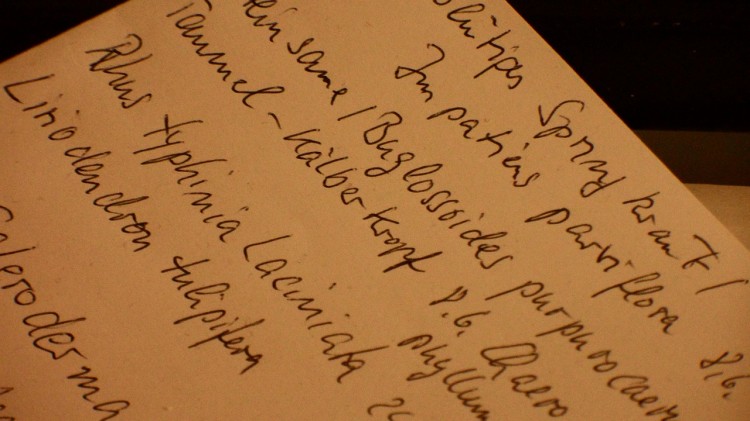 Springkraut /
Impatiens parviflora 8.6.
/ Buglossoides purpurocaer
Taumel-Kälberkropf 8.6. Chaero
phyllum
Rhus typhinia Laciniata 
Liriodendron tulipifera
eroderma